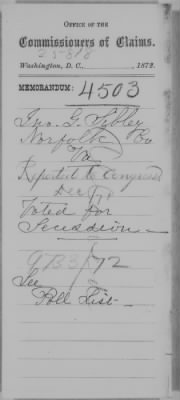 OFFICE OF THE
Commissioners of Claims.
Washington, D. C., , 1872.
MEMORANDUM: 4503
Jno. G. Sibley
Norfolk Co
Va
Reported to Congress
Dec
Voted for
Secession
72
See
Poll List